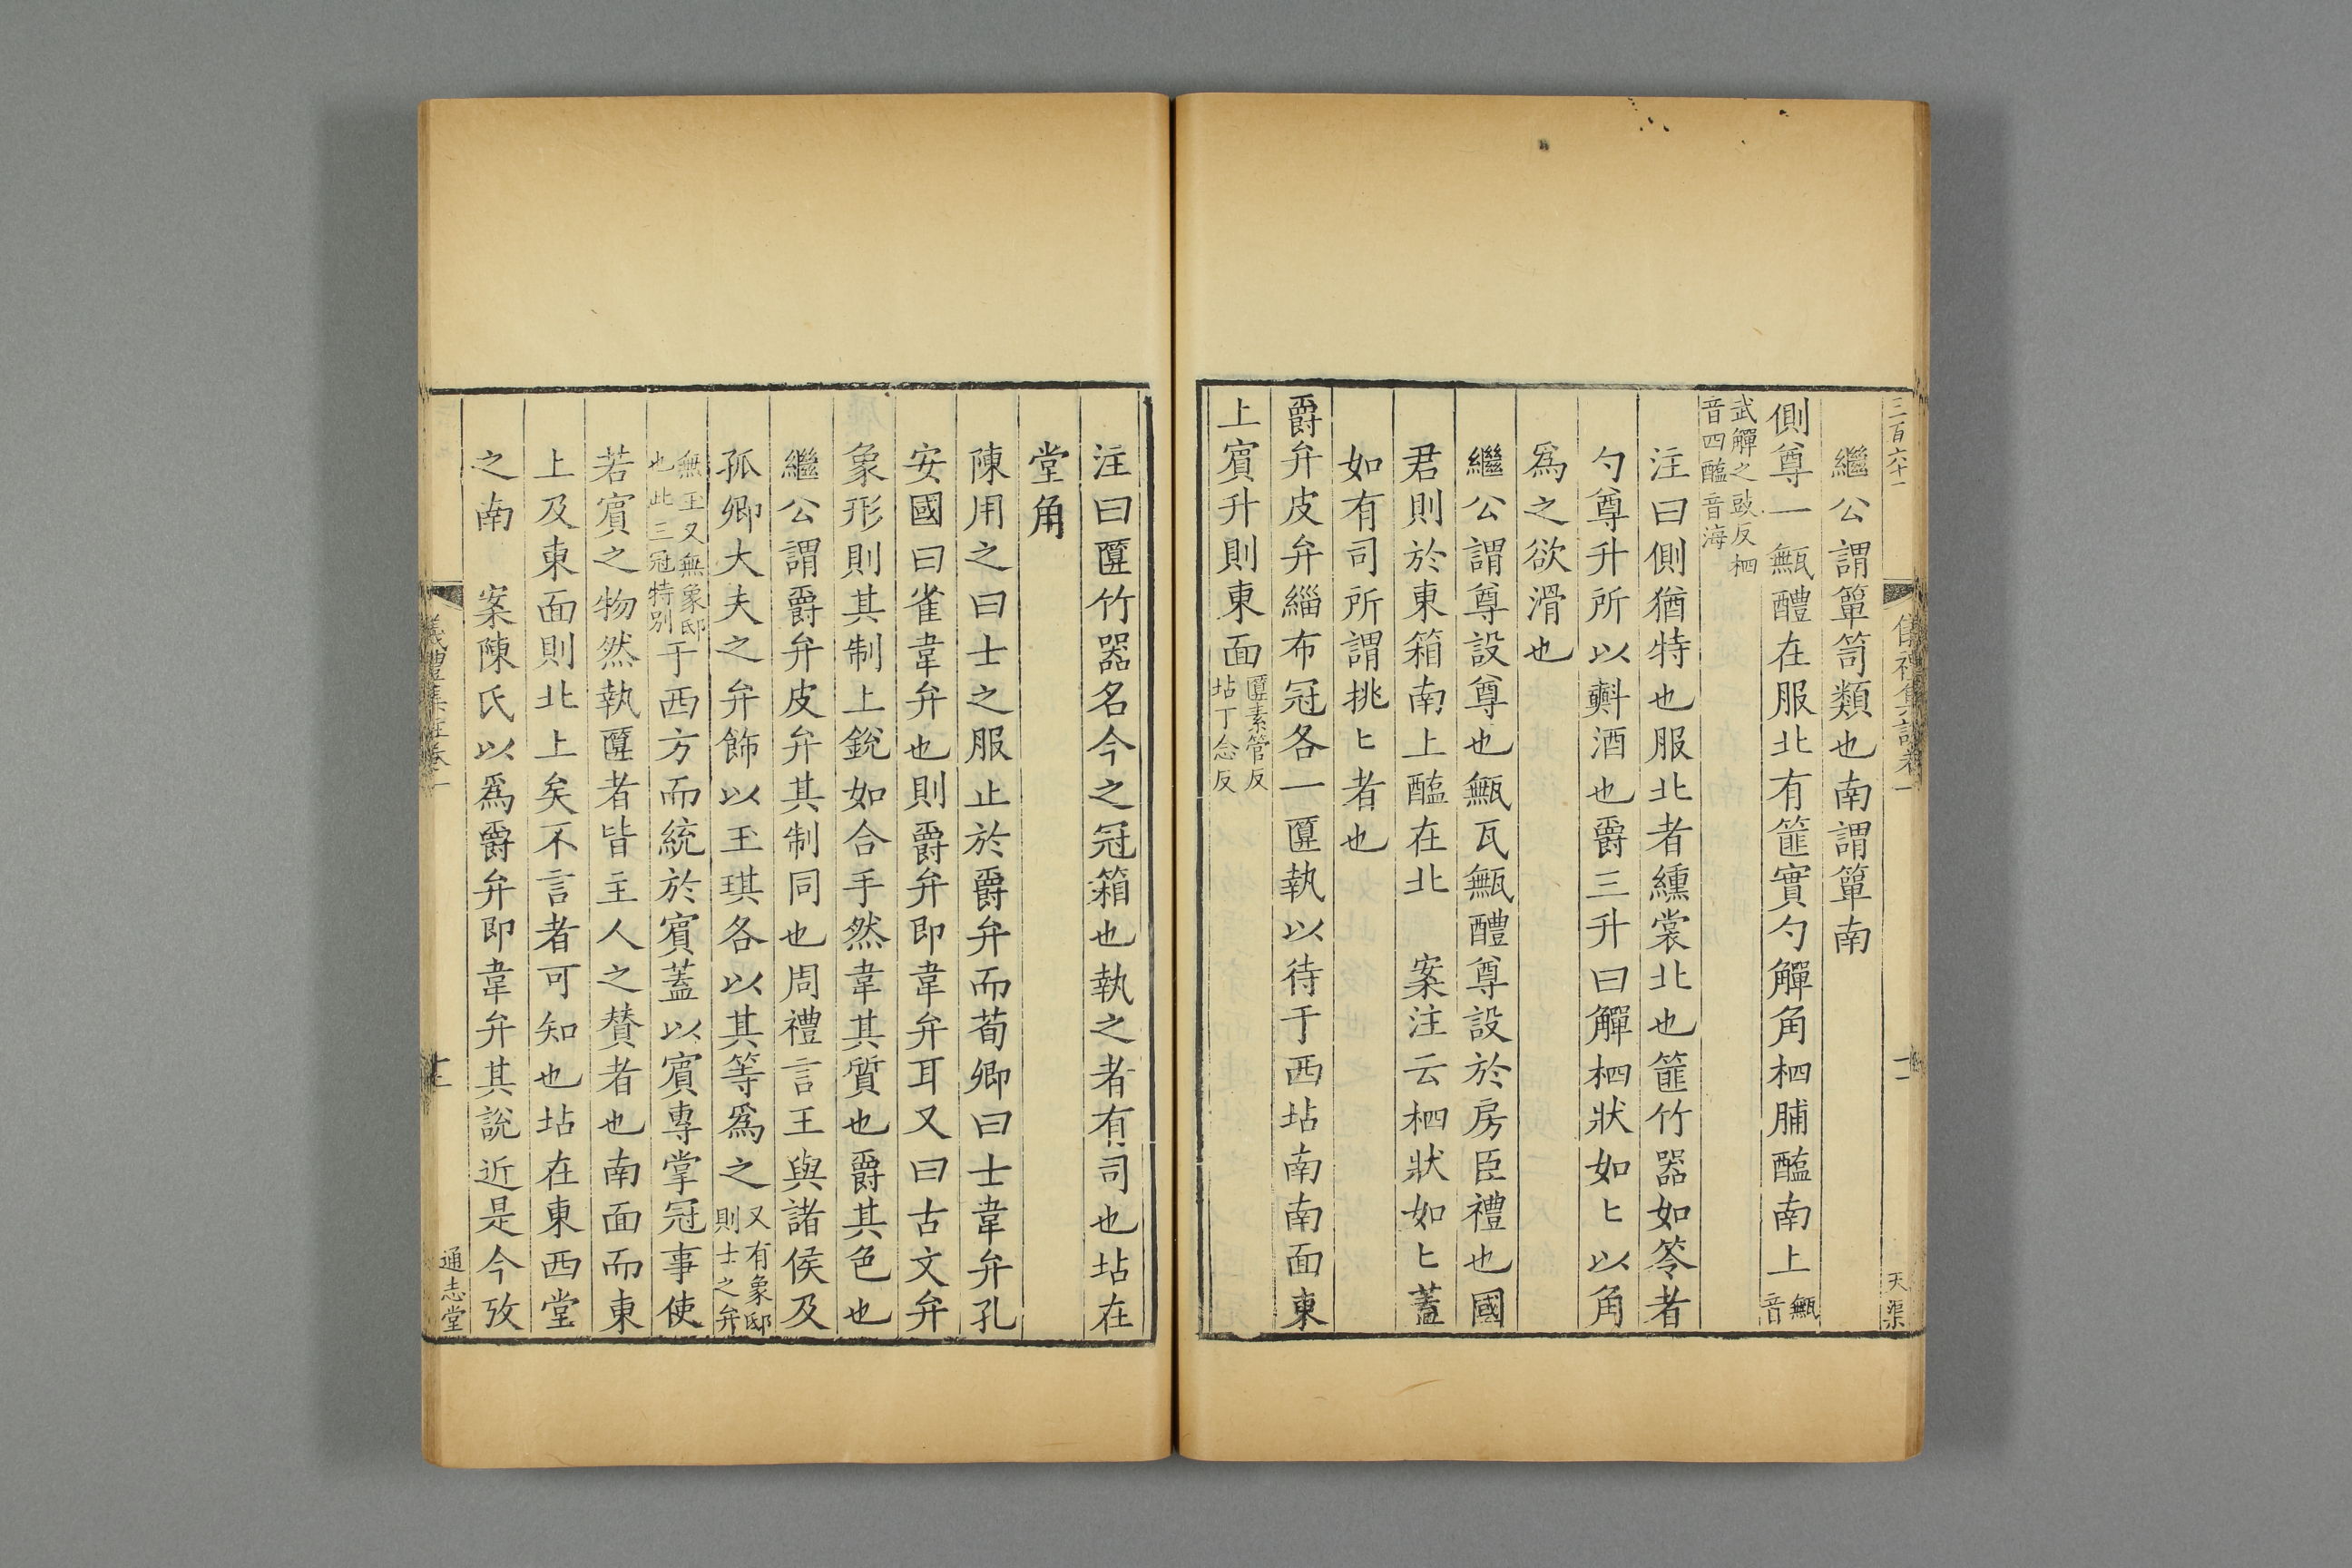 三百六十一
一
天渠
繼公謂簞笥類也南謂簞南
側尊一甒醴在服北有篚實勺觶角柶脯醢南上甒音
武觶之豉反柶
音四醢音海
注曰側猶特也服北者纁裳北也篚竹器如笭者
勺尊升所以㪺酒也爵三升曰觶柶狀如匕以角
爲之欲滑也
繼公謂尊設尊也甒瓦甒醴尊設於房臣禮也國
君則於東箱南上醢在北　案注云柶狀如匕蓋
如有司所謂挑匕者也
爵弁皮弁緇布冠各一匴執以待于西坫南南面東
上賓升則東面匴素管反坫丁念反
注曰匴竹器名今之冠箱也執之者有司也坫在
堂角
陳用之曰士之服止於爵弁而荀卿曰士韋弁孔
安國曰雀韋弁也則爵弁即韋弁耳又曰古文弁
象形則其制上銳如合手然韋其質也爵其色也
繼公謂爵弁皮弁其制同也周禮言王與諸侯及
孤卿大夫之弁飾以玉琪各以其等爲之又有象邸則士之弁
無玉又無象邸也此三冠特别于西方而統於賓蓋以賓專掌冠事使
若賓之物然執匴者皆主人之贊者也南面而東
上及東面則北上矣不言者可知也坫在東西堂
之南　案陳氏以爲爵弁即韋弁其說近是今攷
儀禮集說卷一
十一
通志堂